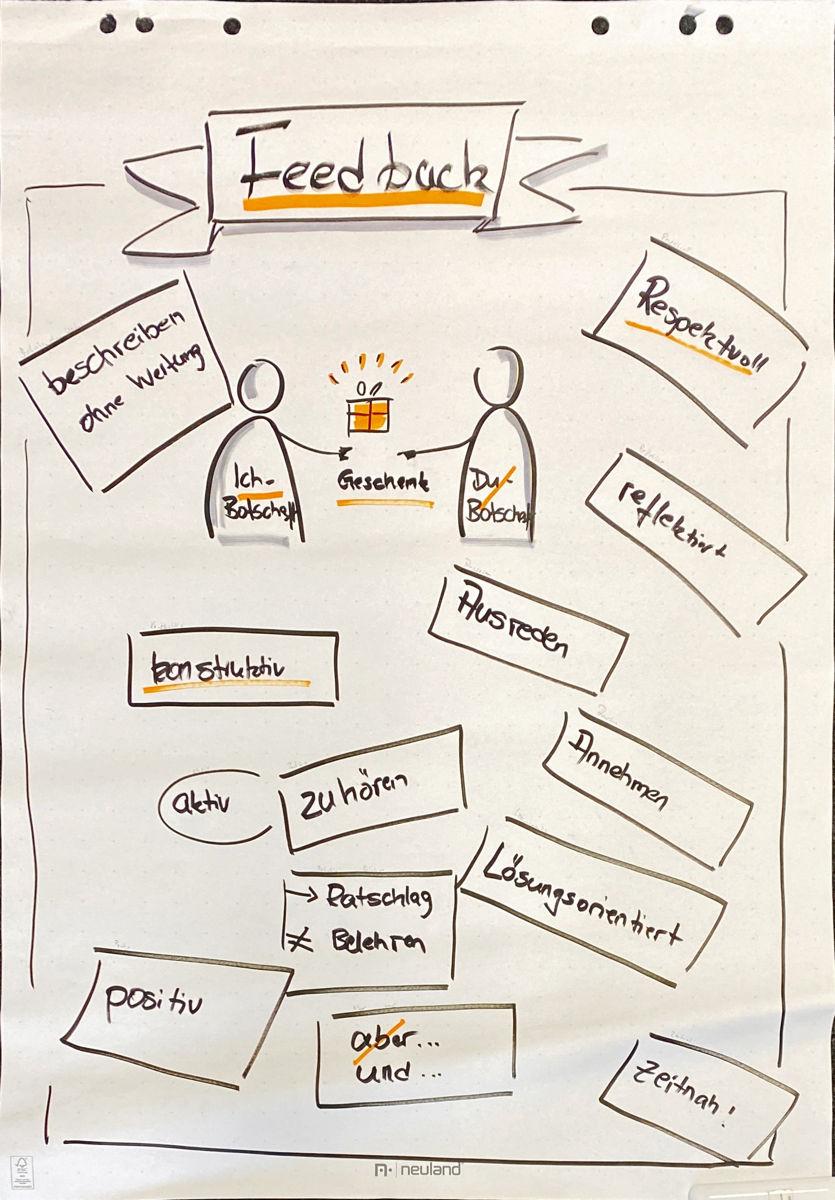 Feedback
beschreiben
ohne Wertung
Respektvoll
Ich-
Botschaft
Geschenk
Du-
Botschaft
reflektiert
Ausreden
konstruktiv
Annehmen
aktiv
zuhören
Lösungsorientiert
→ Ratschlag
≠ Belehren
positiv
aber...
und...
Zeitnah!
neuland